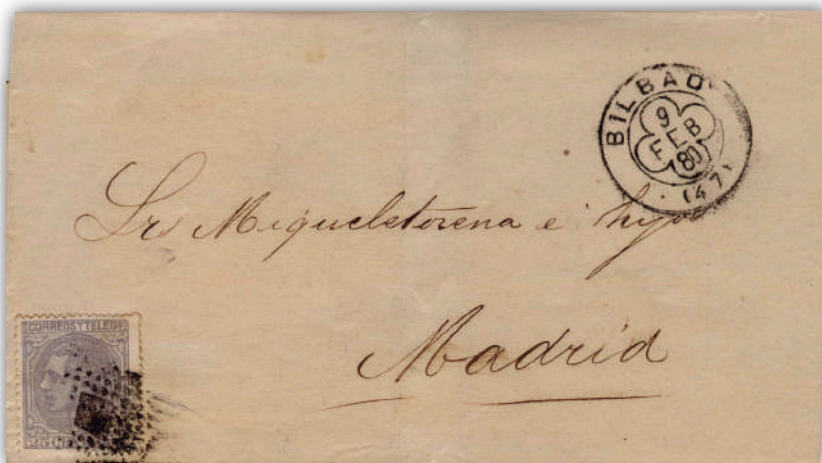 BILBAO
9
FEB
80
(47)
Srs Migueletorena e hijos
Madrid
CORREOS Y TELEGS